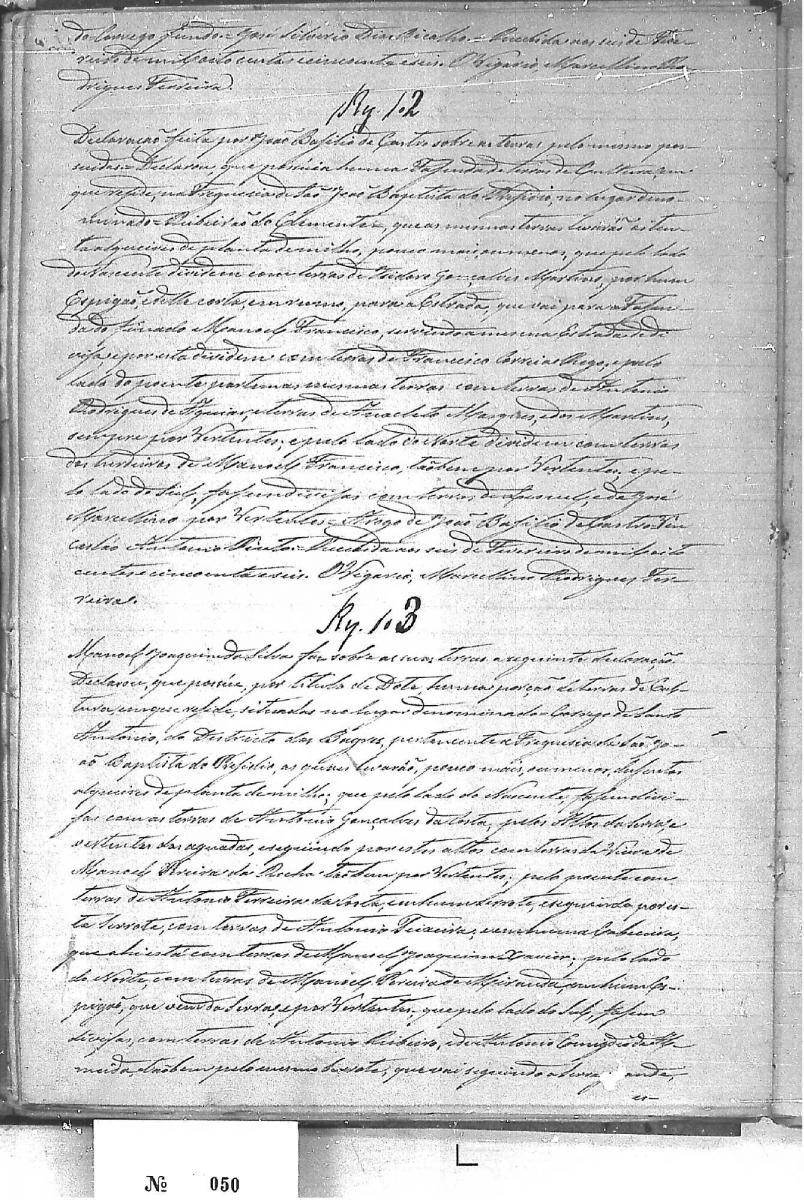 do Corrego fundo = José Silverio Dias Bicalho = Recebida aos seis de Feve-
reiro de mil oito centos e cincoenta e seis. O Vigario, Marcellino Ro-
drigues Ferreira.
Rg. 102
Declaração feita por João Basilio de Castro sobre as terras pelo mesmo pos-
suidas = Declarou que possuia huma Fazenda de terras de Cultura, em
que reside, na Freguesia de São João Baptista do Presidio, no lugar deno-
minado = Ribeirão do Clemente = que as mesmas terras levarão oiten-
ta alqueires de planta de milho, pouco mais, ou menos, que pelo lado
do Nascente dividem com terras de Isidoro Gonçalves Martins, por hum
Espigão, e delle corta, em rumo, para a Estrada, que vai para a Fazen-
da do finado Manoel Francisco, servindo a mesma Estrada de di-
visa, e por esta dividem com terras de Francisco Corrêa Rego, e pelo
lado do poente partem as mesmas terras com terras de Antonio
Rodrigues de Aguiar, e terras de Anacleto e dos Martins,
sempre por Vertentes; e pelo lado do Norte dividem com terras
dos herdeiros de Manoel Francisco, tãobem por Vertentes, e pe-
lo lado do Sul, fasem divisas com terras de e de José
Marcellino por Vertentes = A rogo de João Basilio de Castro
Antonio Pinto = Recebida aos seis de Fevereiro de mil oito
centos e cincoenta e seis. O Vigario, Marcellino Rodrigues Fer-
reira.
Rg. 103
Manoel Joaquim da Silva faz sobre as suas terras a seguinte declaração.
Declarou, que possúe, por titulo de Dote, huma porção de terras de Cul-
tura, em que reside, situadas no lugar denominado = Corrego de Santo
Antonio, do Districto dos Bagres, pertencente a Freguesia de São Jo-
ão Baptista do Presidio, as quaes levarão, pouco mais, ou menos, dusentos
alqueires de planta de milho; que pelo lado do Nascente, fasem divi-
sas com as terras de Antonio Gonçalves da Costa, pelos Altos da Serra, e
vertentes das aguadas, e seguindo por estes altos com terras da Viuva de
Manoel Pereira da Rocha tãobem por Vertentes; pelo poente com
terras de Antonio Ferreira da Costa, em hum Serrote, e seguindo por es-
te Serrote, com terras de Antonio Teixeira, e em huma Cabeceira,
que ahi está com terras de Manoel Joaquim Xavier; pelo lado
do Norte, com terras de Manoel Pereira de Miranda, em hum Es-
pigão, que vem da Serra, e por Vertentes; que pelo lado do Sul, fasem
divisas, com terras de Antonio Ribeiro, e de Antonio de Al-
meida, tãobem pelo mesmo Serrote; que vai seguindo a Serra grande,
es-
Nº 050